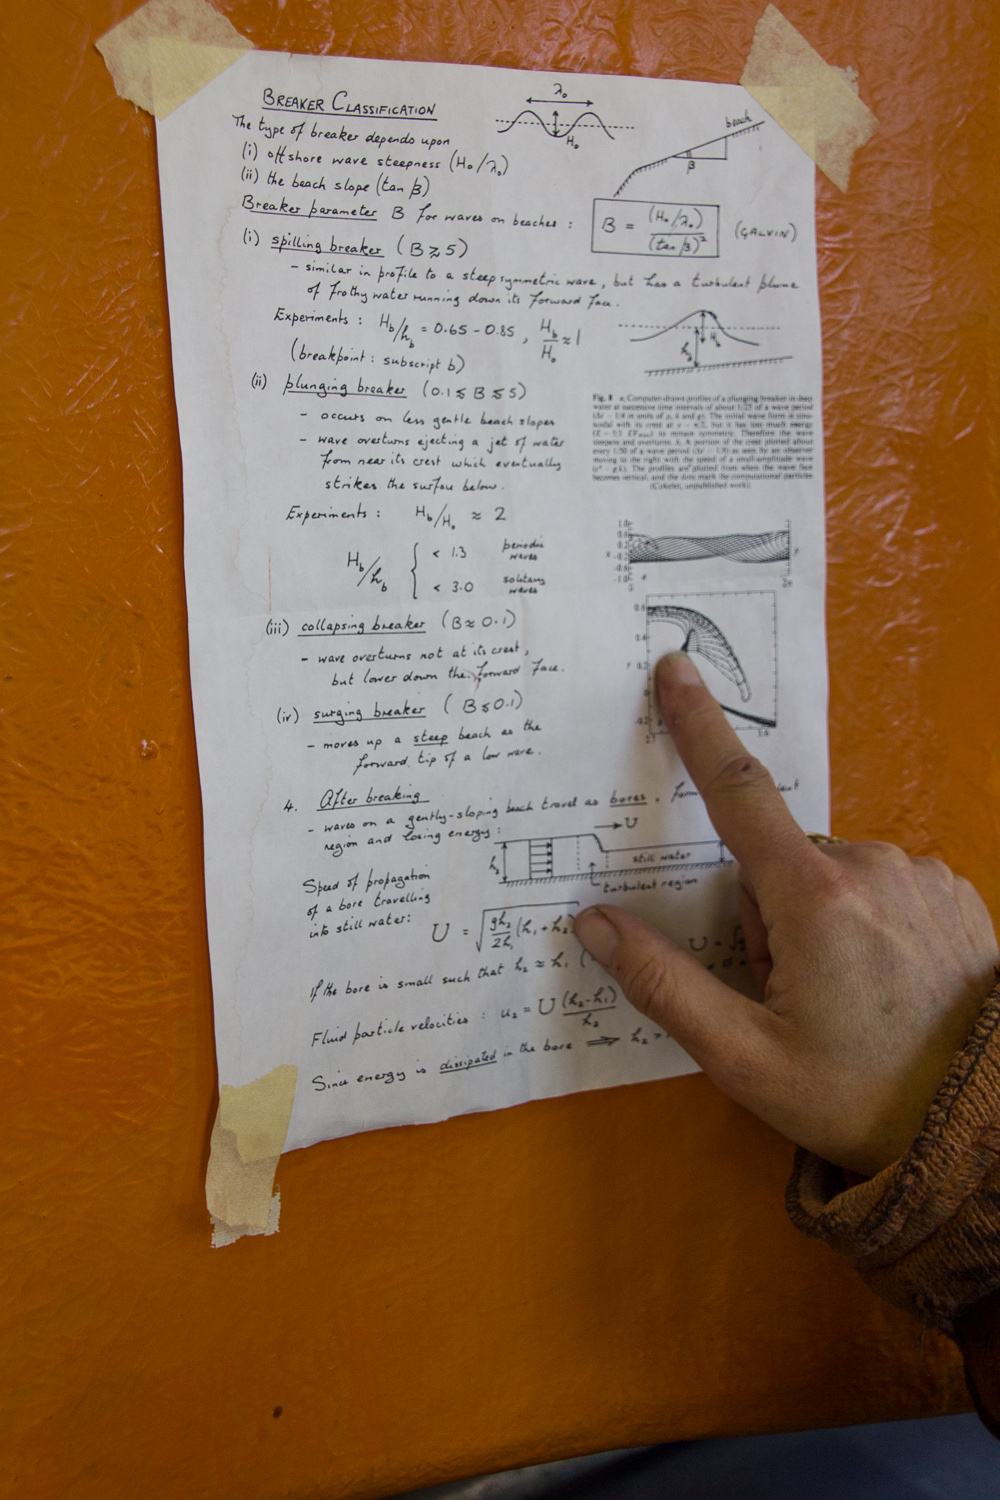 BREAKER CLASSIFICATION
The type of breaker depends upon
(i) offshore wave steepness (H₀/λ₀)
(ii) the beach slope (tan β)
Breaker parameter B for waves on beaches :
λ₀
H₀
beach
β
B = (H₀/λ₀) / (tan β)² (GALVIN)
(i) spilling breaker (B ≳ 5)
- similar in profile to a steep symmetric wave, but has a turbulent plume
of frothy water running down its forward face.
Experiments : H_b/h_b = 0.65 - 0.85 , H_b/H₀ ≈ 1
(breakpoint : subscript b)
h_b
H_b
(ii) plunging breaker (0.1 ≲ B ≲ 5)
- occurs on less gentle beach slopes
- wave overturns ejecting a jet of water
from near its crest which eventually
strikes the surface below.
Experiments : H_b/H₀ ≈ 2
H_b/h_b { < 1.3 periodic waves
< 3.0 solitary waves
Fig. 8 a, Computer-drawn profiles of a plunging breaker in deep
water at successive time intervals of about 1/25 of a wave period
in units of ρ, k and g). The initial wave form is sinu-
soidal with its crest at π/2, but it has too much energy
to remain symmetric. Therefore the wave
steepens and overturns. b, A portion of the crest plotted about
every 1/50 of a wave period as seen by an observer
moving to the right with the speed of a small-amplitude wave
The profiles are plotted from when the wave face
becomes vertical, and the dots mark the computational particles
(Cokelet, unpublished work)
1.0
0.6
0.2
-0.2
-0.6
-1.0
0.6
0.4
0.2
0
-0.2
(iii) collapsing breaker (B ≈ 0.1)
- wave overturns not at its crest,
but lower down the forward face.
(iv) surging breaker (B ≲ 0.1)
- moves up a steep beach as the
forward tip of a low wave.
4. After breaking
- waves on a gently-sloping beach travel as bores,
region and losing energy :
U
h₂
still water
turbulent region
Speed of propagation
of a bore travelling
into still water:
U = √(gh₂/2h₁ (h₁ + h₂
If the bore is small such that h₂ ≈ h₁ (
U = √
Fluid particle velocities : u₂ = U (h₂-h₁)/h₂
Since energy is dissipated in the bore ⟹ h₂ >